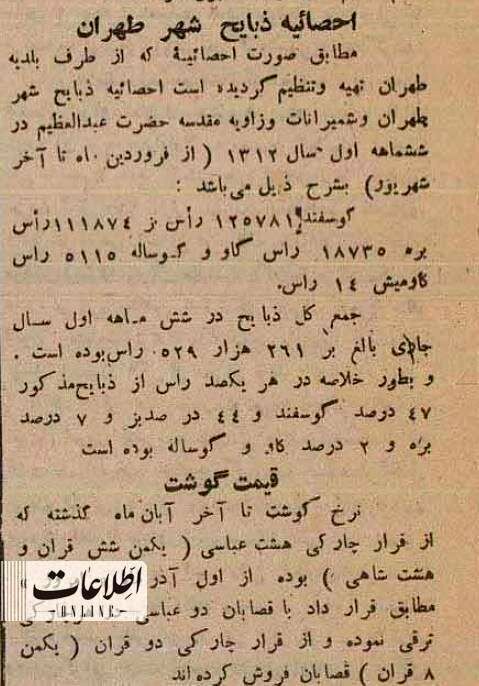 احصائیه ذبایح شهر طهران
مطابق صورت احصائیهٔ که از طرف بلدیه
طهران تهیه وتنظیم گردیده است احصائیه ذبایح شهر
طهران وشمیرانات وزاویه مقدسه حضرت عبدالعظیم در
ششماهه اول سال ۱۳۱۲ ( از فروردین ماه تا آخر
شهریور) بشرح ذیل می باشد :
گوسفند ۱۲۵۷۸۱ رأس بز ۱۱۱۸۷۴ رأس
بره ۱۸۷۳۵ راس گاو و گوساله ۵۱۱۵ راس
گاومیش ۱٤ راس.
جمع کل ذبایح در شش ماهه اول سال
جاری بالغ بر ۲٦۱ هزار ۵۲۹ راس بوده است .
و بطور خلاصه در هر یکصد راس از ذبایح مذکور
٤۷ درصد گوسفند و ٤٤ در صد بز و ۷ درصد
بره و ۲ درصد گاو و گوساله بوده است
قیمت گوشت
نرخ گوشت تا آخر آبان ماه گذشته که
از قرار چارکی هشت عباسی ( یکمن شش قران و
هشت شاهی ) بوده از اول آذر
مطابق قرار داد با قصابان دو عباسی
ترقی نموده و از قرار چارکی دو قران ( یکمن
۸ قران ) قصابان فروش کرده اند
اطلاعات
ONLINE